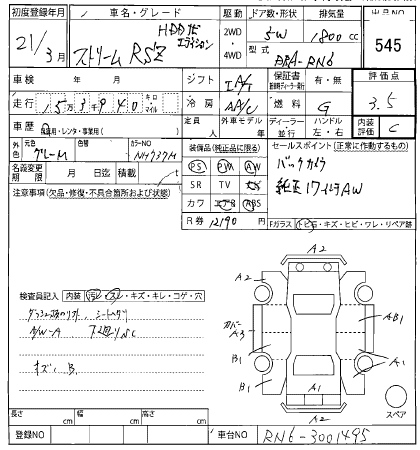 初度登録年月 車名・グレード 駆動 ドア数・形状 排気量 出品NO
21/3月 ストリーム RSZ HDDナビエディション 2WD・4WD 5W 1800cc 545
型式 DBA-RN6
車検 年 月 シフト IAT 保証書 有・無 評価点
走行 15万3千940 キロ・マイル 冷房 AAC 燃料 G 3.5
車歴 自家用・レンタ・事業用( ) 定員 人 外車モデル 年 ディーラー・並行 ハンドル 左・右 内装評価 C
外色 元色 グレーM 色替 カラーNO NH737M
装備品(純正品に限る) セールスポイント(正常に作動するもの)
名義変更期限 月 日迄 積載 t
PS PW AW バックカメラ
SR TV 純正17インチAW
注意事項(欠品・修復・不具合箇所および状態)
カワ エアB ABS
R券 12190 円 Fガラス トビ石・キズ・ヒビ・ワレ・リペア跡
A2
A2 A2
カバーA3 AB1
B1 A1
B1 A1
A2
スペア
検査員記入 内装 汚レ・スレ・キズ・キレ・コゲ・穴
キズ、B
長さ cm 幅 cm 高さ cm
登録NO 車台NO RN6-3001495